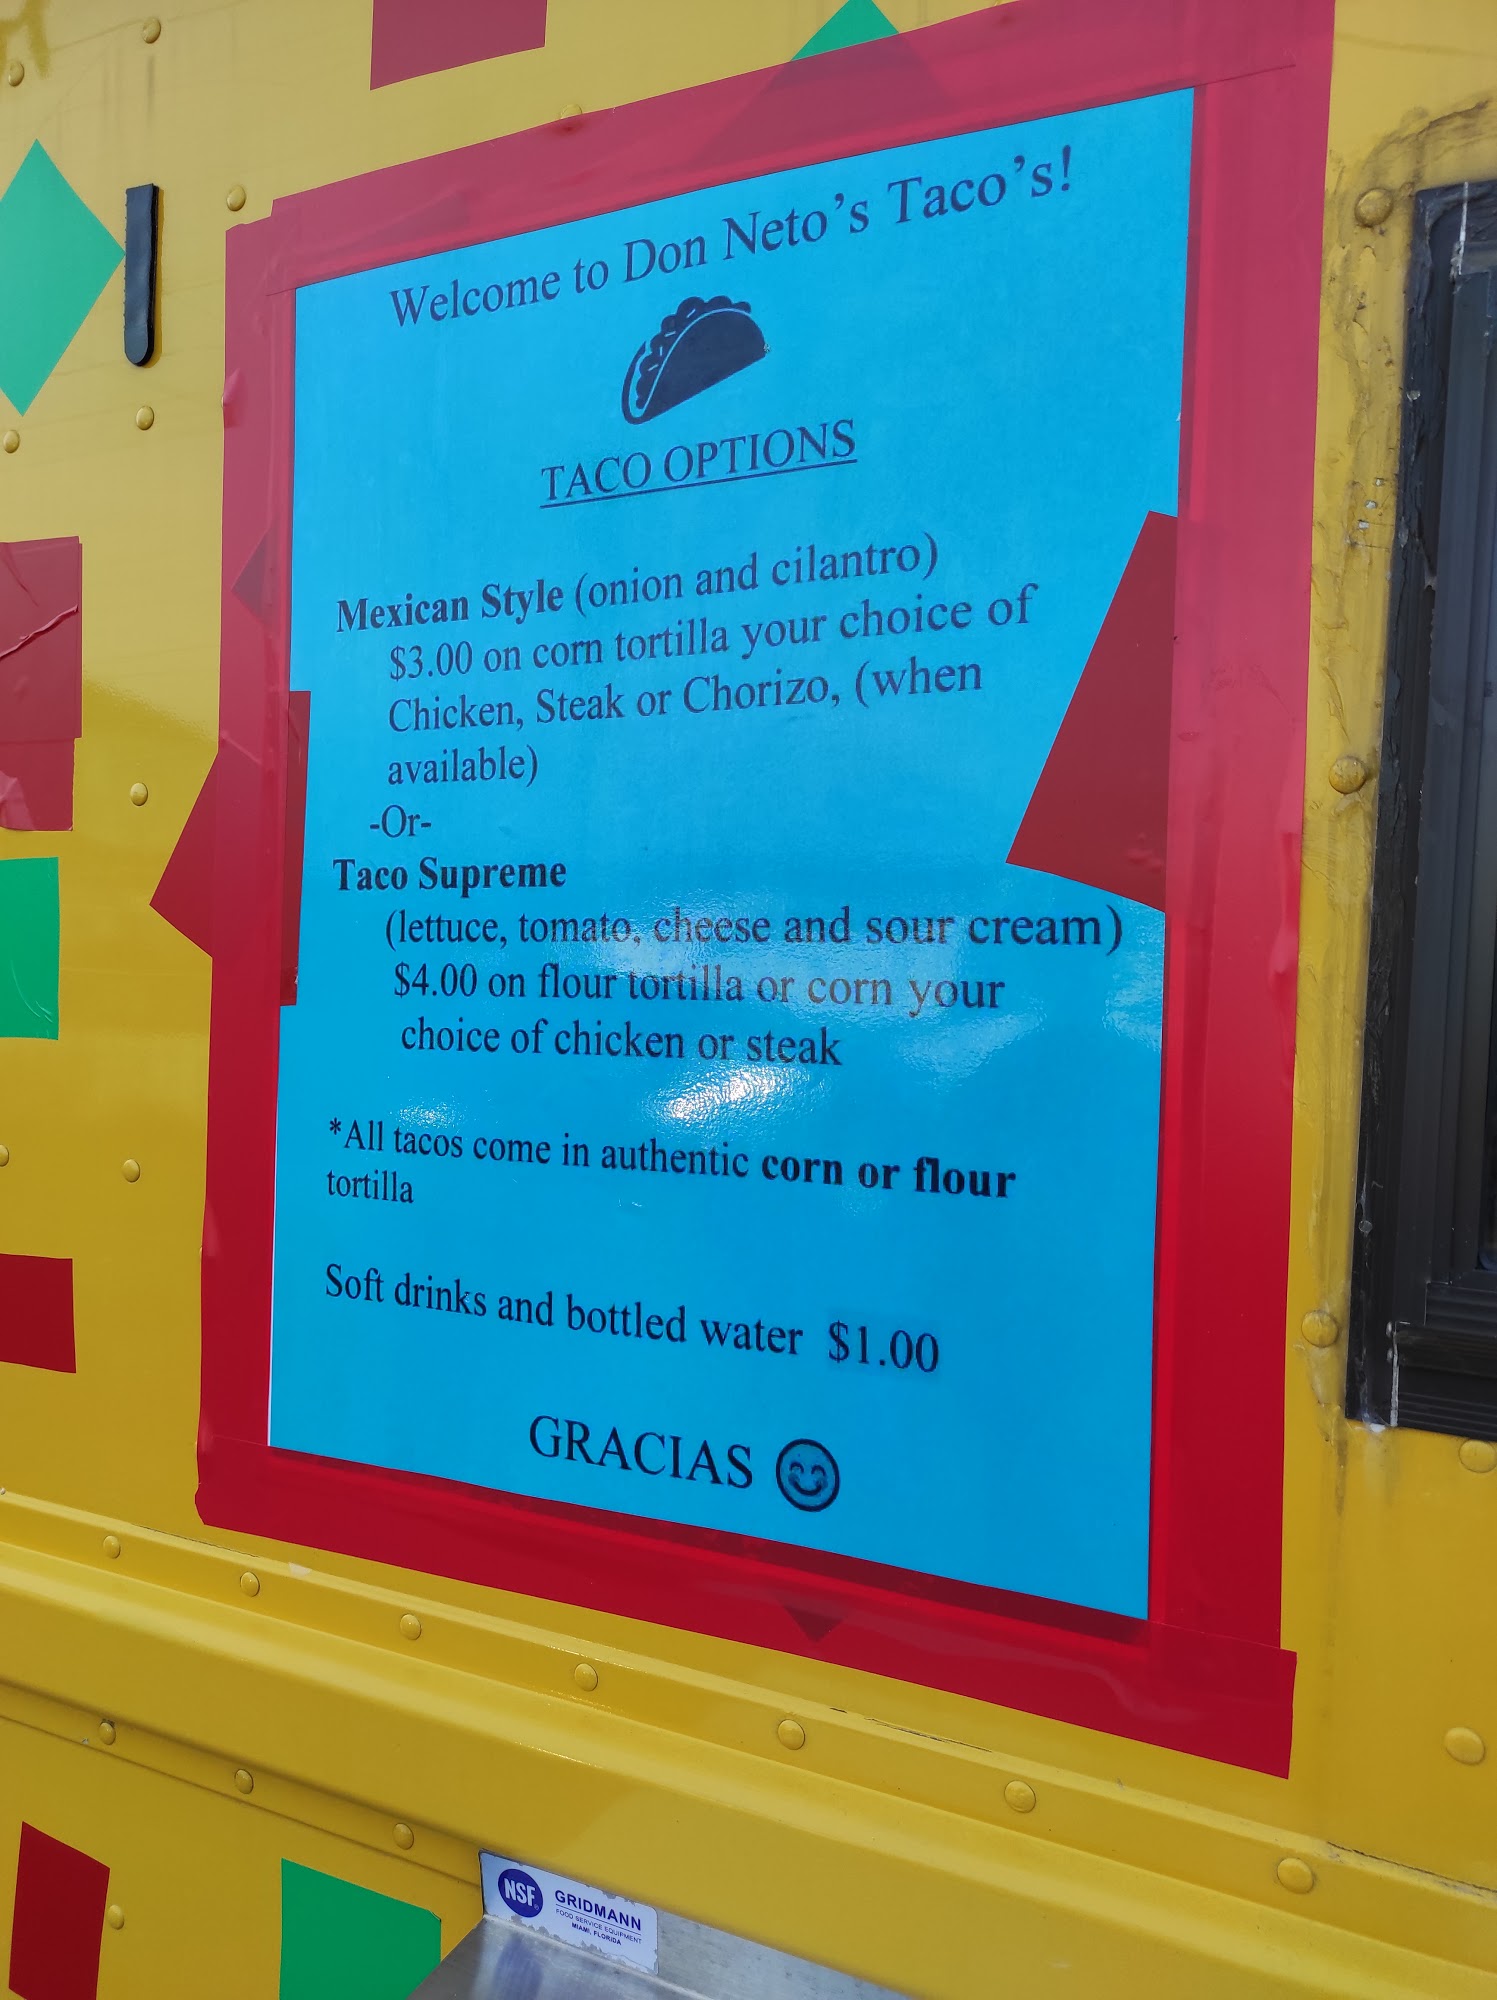 Welcome to Don Neto's Taco's!
TACO OPTIONS
Mexican Style (onion and cilantro)
$3.00 on corn tortilla your choice of
Chicken, Steak or Chorizo, (when
available)
-Or-
Taco Supreme
(lettuce, tomato, cheese and sour cream)
$4.00 on flour tortilla or corn your
choice of chicken or steak
*All tacos come in authentic corn or flour
tortilla
Soft drinks and bottled water $1.00
GRACIAS
NSF
GRIDMANN
FOOD SERVICE EQUIPMENT
MIAMI, FLORIDA